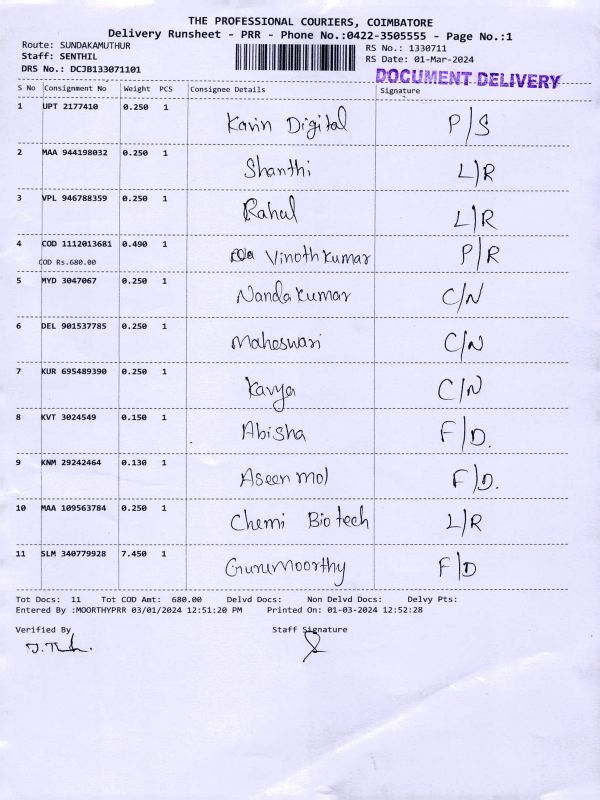 THE PROFESSIONAL COURIERS, COIMBATORE
Delivery Runsheet - PRR - Phone No.:0422-3505555 - Page No.:1
Route: SUNDAKAMUTHUR RS No.: 1330711
Staff: SENTHIL RS Date: 01-Mar-2024
DRS No.: DCJB133071101 DOCUMENT DELIVERY
S No Consignment No Weight PCS Consignee Details Signature
1 UPT 2177410 0.250 1 Kavin Digital P/S
2 MAA 944198032 0.250 1 Shanthi L/R
3 VPL 946788359 0.250 1 Rahul L/R
4 COD 1112013681 0.490 1 Vinoth Kumar P/R
COD Rs.680.00
5 MYD 3047067 0.250 1 Nanda Kumar C/N
6 DEL 901537785 0.250 1 Maheswari C/N
7 KUR 695489390 0.250 1 Kavya C/N
8 KVT 3024549 0.150 1 Abisha F/D.
9 KNM 29242464 0.130 1 Aseen mol F/D.
10 MAA 109563784 0.250 1 Chemi Bio tech L/R
11 SLM 340779928 7.450 1 Gurumoorthy F/D
Tot Docs: 11 Tot COD Amt: 680.00 Delvd Docs: Non Delvd Docs: Delvy Pts:
Entered By :MOORTHYPRR 03/01/2024 12:51:20 PM Printed On: 01-03-2024 12:52:28
Verified By Staff Signature